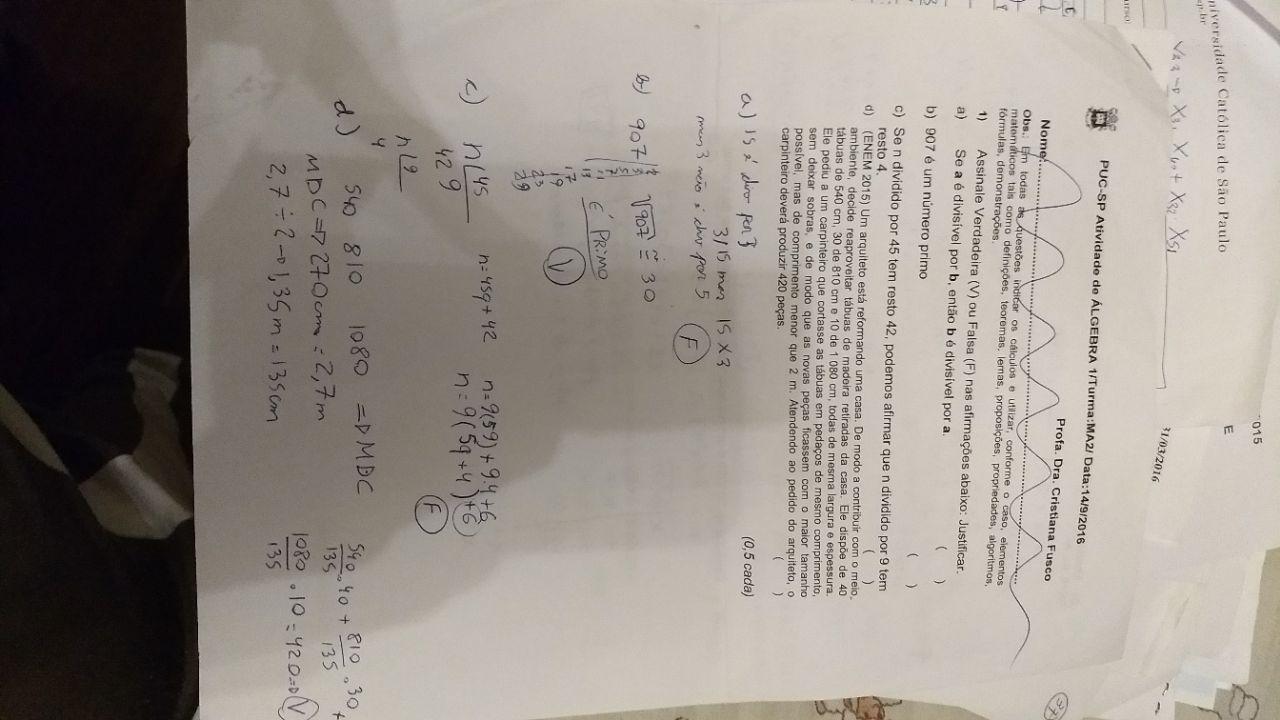 niversidade Católica de São Paulo
sp.br
015
E
31/03/2016
PUC-SP Atividade de ÁLGEBRA 1/Turma:MA2/ Data:14/9/2016
Nome: Profa. Dra. Cristiana Fusco
Obs.: Em todas as questões indicar os cálculos e utilizar, conforme o caso, elementos
matemáticos tais como definições, teoremas, lemas, proposições, propriedades, algoritmos,
fórmulas, demonstrações.
1) Assinale Verdadeira (V) ou Falsa (F) nas afirmações abaixo: Justificar.
a) Se a é divisível por b, então b é divisível por a. ( )
b) 907 é um número primo ( )
c) Se n dividido por 45 tem resto 42, podemos afirmar que n dividido por 9 tem
resto 4. ( )
d) (ENEM 2015) Um arquiteto está reformando uma casa. De modo a contribuir com o meio
ambiente, decide reaproveitar tábuas de madeira retiradas da casa. Ele dispõe de 40
tábuas de 540 cm, 30 de 810 cm e 10 de 1 080 cm, todas de mesma largura e espessura.
Ele pediu a um carpinteiro que cortasse as tábuas em pedaços de mesmo comprimento,
sem deixar sobras, e de modo que as novas peças ficassem com o maior tamanho
possível, mas de comprimento menor que 2 m. Atendendo ao pedido do arquiteto, o
carpinteiro deverá produzir 420 peças. ( )
(0,5 cada)
a) 15 é divo por 3
3/15 mas 15 X 3
mas 3 não é divo por 5 F
b) 907 √907 ≅ 30
2
3
5
7
11
13
17
19
23
29
É PRIMO
V
c) n 45 n=45q+42 n=9(5q)+9.4+6
42 q n=9(5q+4)+6
n 9
4
F
d) 540 810 1080 => MDC
MDC => 270cm = 2,7m
2,7 ÷ 2 → 1,35m = 135cm
540/135 . 40 + 810/135 . 30 +
1080/135 . 10 = 420 => V